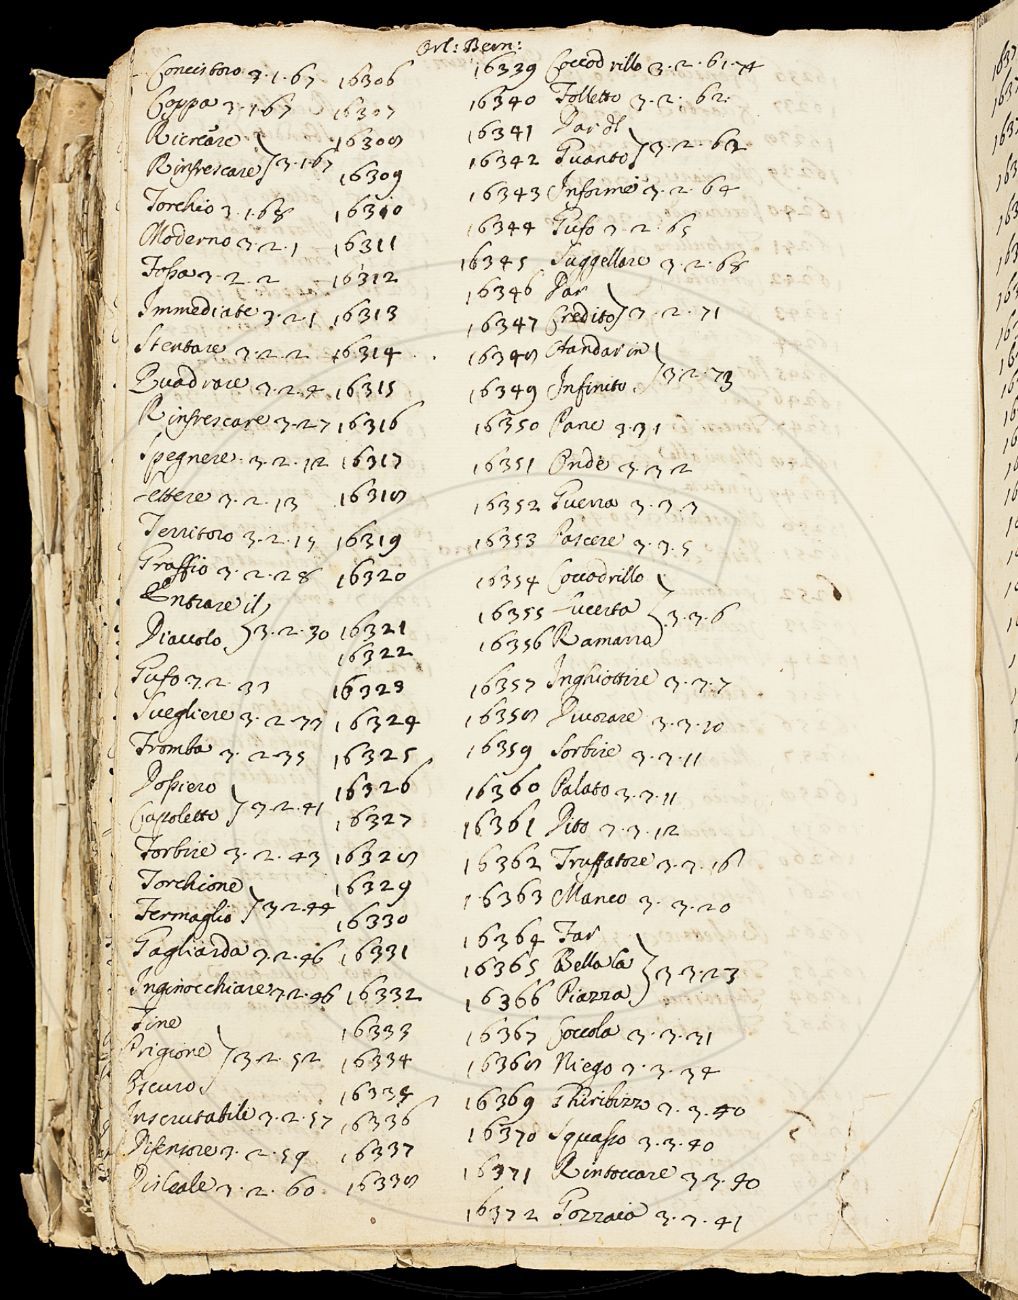 Orl: Bern:
Concistoro 3.1.67 16306
Coppa 3.1.67 16307
Ricreare 16308
Rinfrescare 3.1.67 16309
Torchio 3.1.68 16310
Moderno 3.2.1 16311
Fossa 3.2.2 16312
Immediate 3.2.1 16313
Stentare 3.2.2 16314
Quadrare 3.2.4 16315
Rinfrescare 3.2.7 16316
Spegnere 3.2.12 16317
3.2.13 16318
Territoro 3.2.15 16319
Graffio 3.2.28 16320
Entrare il
Diavolo 3.2.30 16321
16322
Gufo 3.2.33 16323
Svegliere 3.2.33 16324
Tromba 3.2.35 16325
Dossiero 16326
3.2.41 16327
Forbire 3.2.43 16328
Torchione 16329
Fermaglio 3.2.44 16330
Gagliarda 3.2.46 16331
Inginocchiare 3.2.46 16332
Fine 16333
Prigione 3.2.52 16334
Oscuro 16335
Inscrutabile 3.2.57 16336
3.2.59 16337
Disleale 3.2.60 16338
16339 Coccodrillo 3.2.61.74
16340 Folletto 3.2.62
16341 Dar di
16342 Guanto 3.2.63
16343 Informe 3.2.64
16344 Gufo 3.2.65
16345 Suggellare 3.2.68
16346 Dar
16347 Credito 3.2.71
16348 Andar in
16349 Infinito 3.2.73
16350 Pane 3.3.1
16351 Onde 3.3.2
16352 Guerra 3.3.3
16353 Pascere 3.3.5
16354 Coccodrillo
16355 Lucerta 3.3.6
16356 Ramarro
16357 Inghiottire 3.3.7
16358 Divorare 3.3.10
16359 Sorbire 3.3.11
16360 Palato 3.3.11
16361 Dito 3.3.12
16362 Truffatore 3.3.16
16363 Manco 3.3.20
16364 Far
16365 Bella la 3.3.23
16366 Piazza
16367 Soccola 3.3.31
16368 Niego 3.3.34
16369 Ghiribizzo 3.3.40
16370 Squasso 3.3.40
16371 Rintoccare 3.3.40
16372 Gozzaia 3.3.41